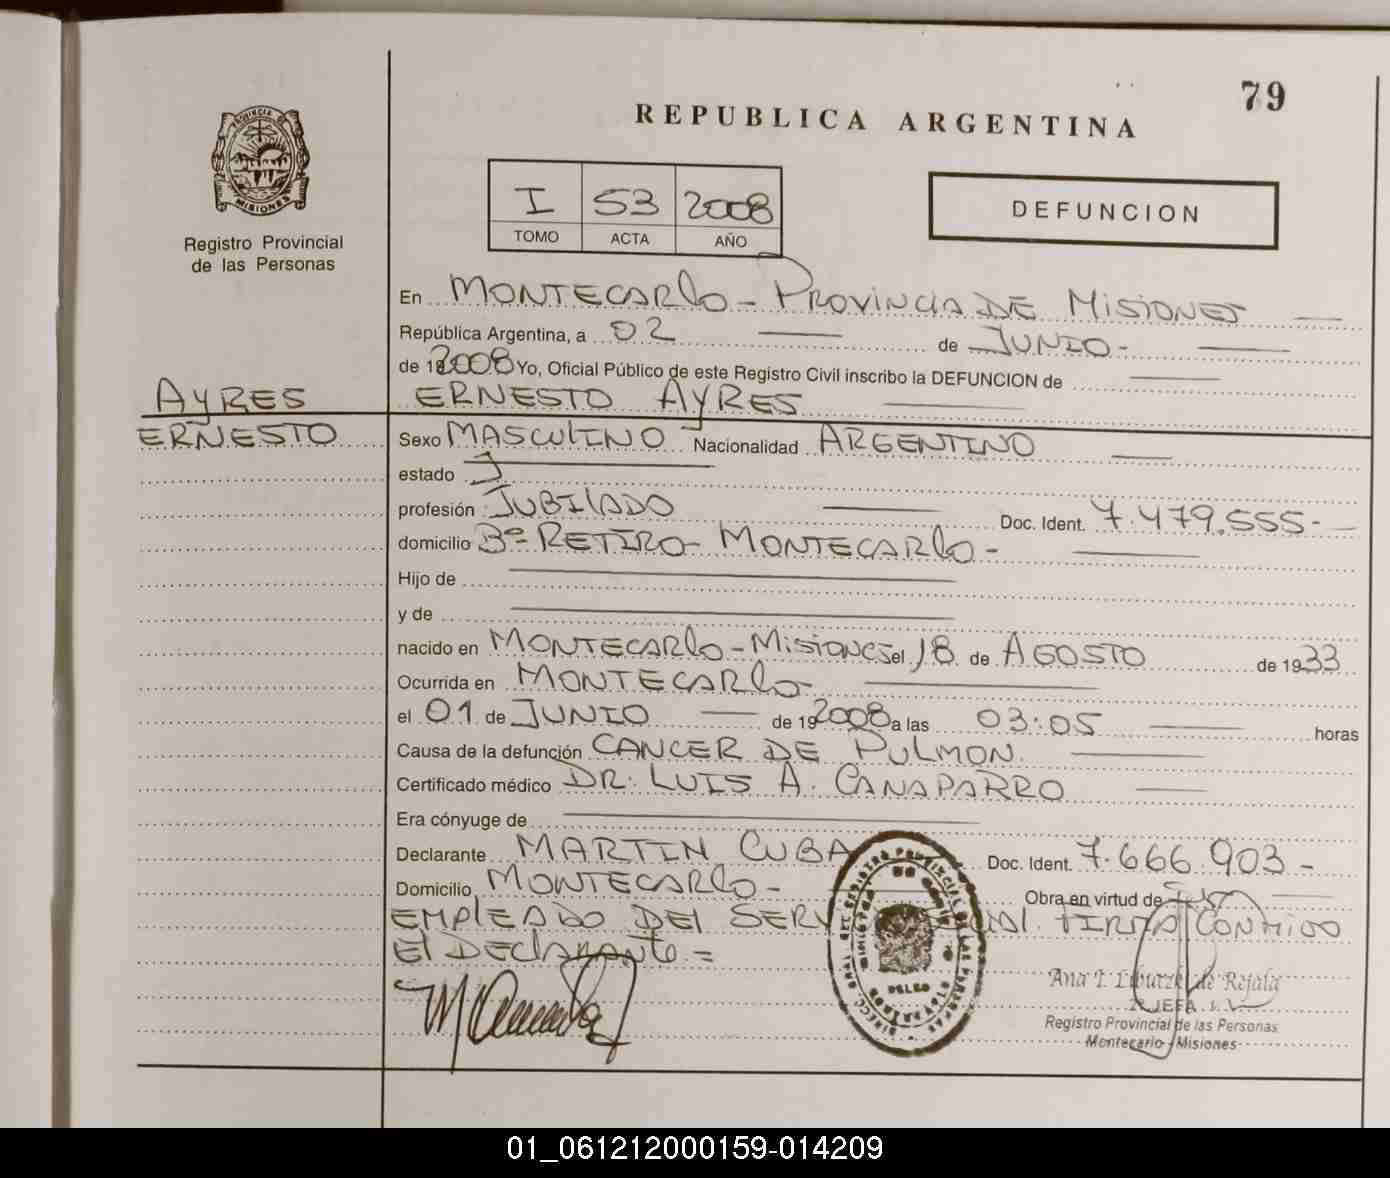 79
REPUBLICA ARGENTINA
PROVINCIA DE
MISIONES
Registro Provincial
de las Personas
I 53 2008
TOMO ACTA AÑO
DEFUNCION
En MONTECARLO - PROVINCIA DE MISIONES
República Argentina, a 02 de JUNIO -
de 19 2008 Yo, Oficial Público de este Registro Civil inscribo la DEFUNCION de
AYRES ERNESTO AYRES
ERNESTO Sexo MASCULINO Nacionalidad ARGENTINO
estado
profesión JUBILADO Doc. Ident. 7.479.555-
domicilio Bº RETIRO - MONTECARLO -
Hijo de
y de
nacido en MONTECARLO - MISIONES el 18 de AGOSTO de 1933
Ocurrida en MONTECARLO -
el 01 de JUNIO de 19 2008 a las 03:05 horas
Causa de la defunción CANCER DE PULMON.
Certificado médico DR. LUIS A. CANAPARRO
Era cónyuge de
Declarante MARTIN CUBA Doc. Ident. 7.666.903-
Domicilio MONTECARLO - Obra en virtud de
EMPLEADO DEL FIRMA CONMIGO
El DECLARANTE =
Ana I. de Rejala
JEFA
Registro Provincial de las Personas
Montecarlo - Misiones
01_061212000159-014209